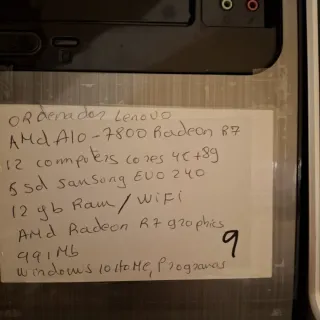 ORdenador Lenovo
AMd A10-7800 Radeon R7
12 commpoters cores 4C+8g
SSd Sansong EVO 240
12 gb Ram / WiFi
AMd Radeon R7 graphics
991Mb
windows 10 HoMe, Programas
9